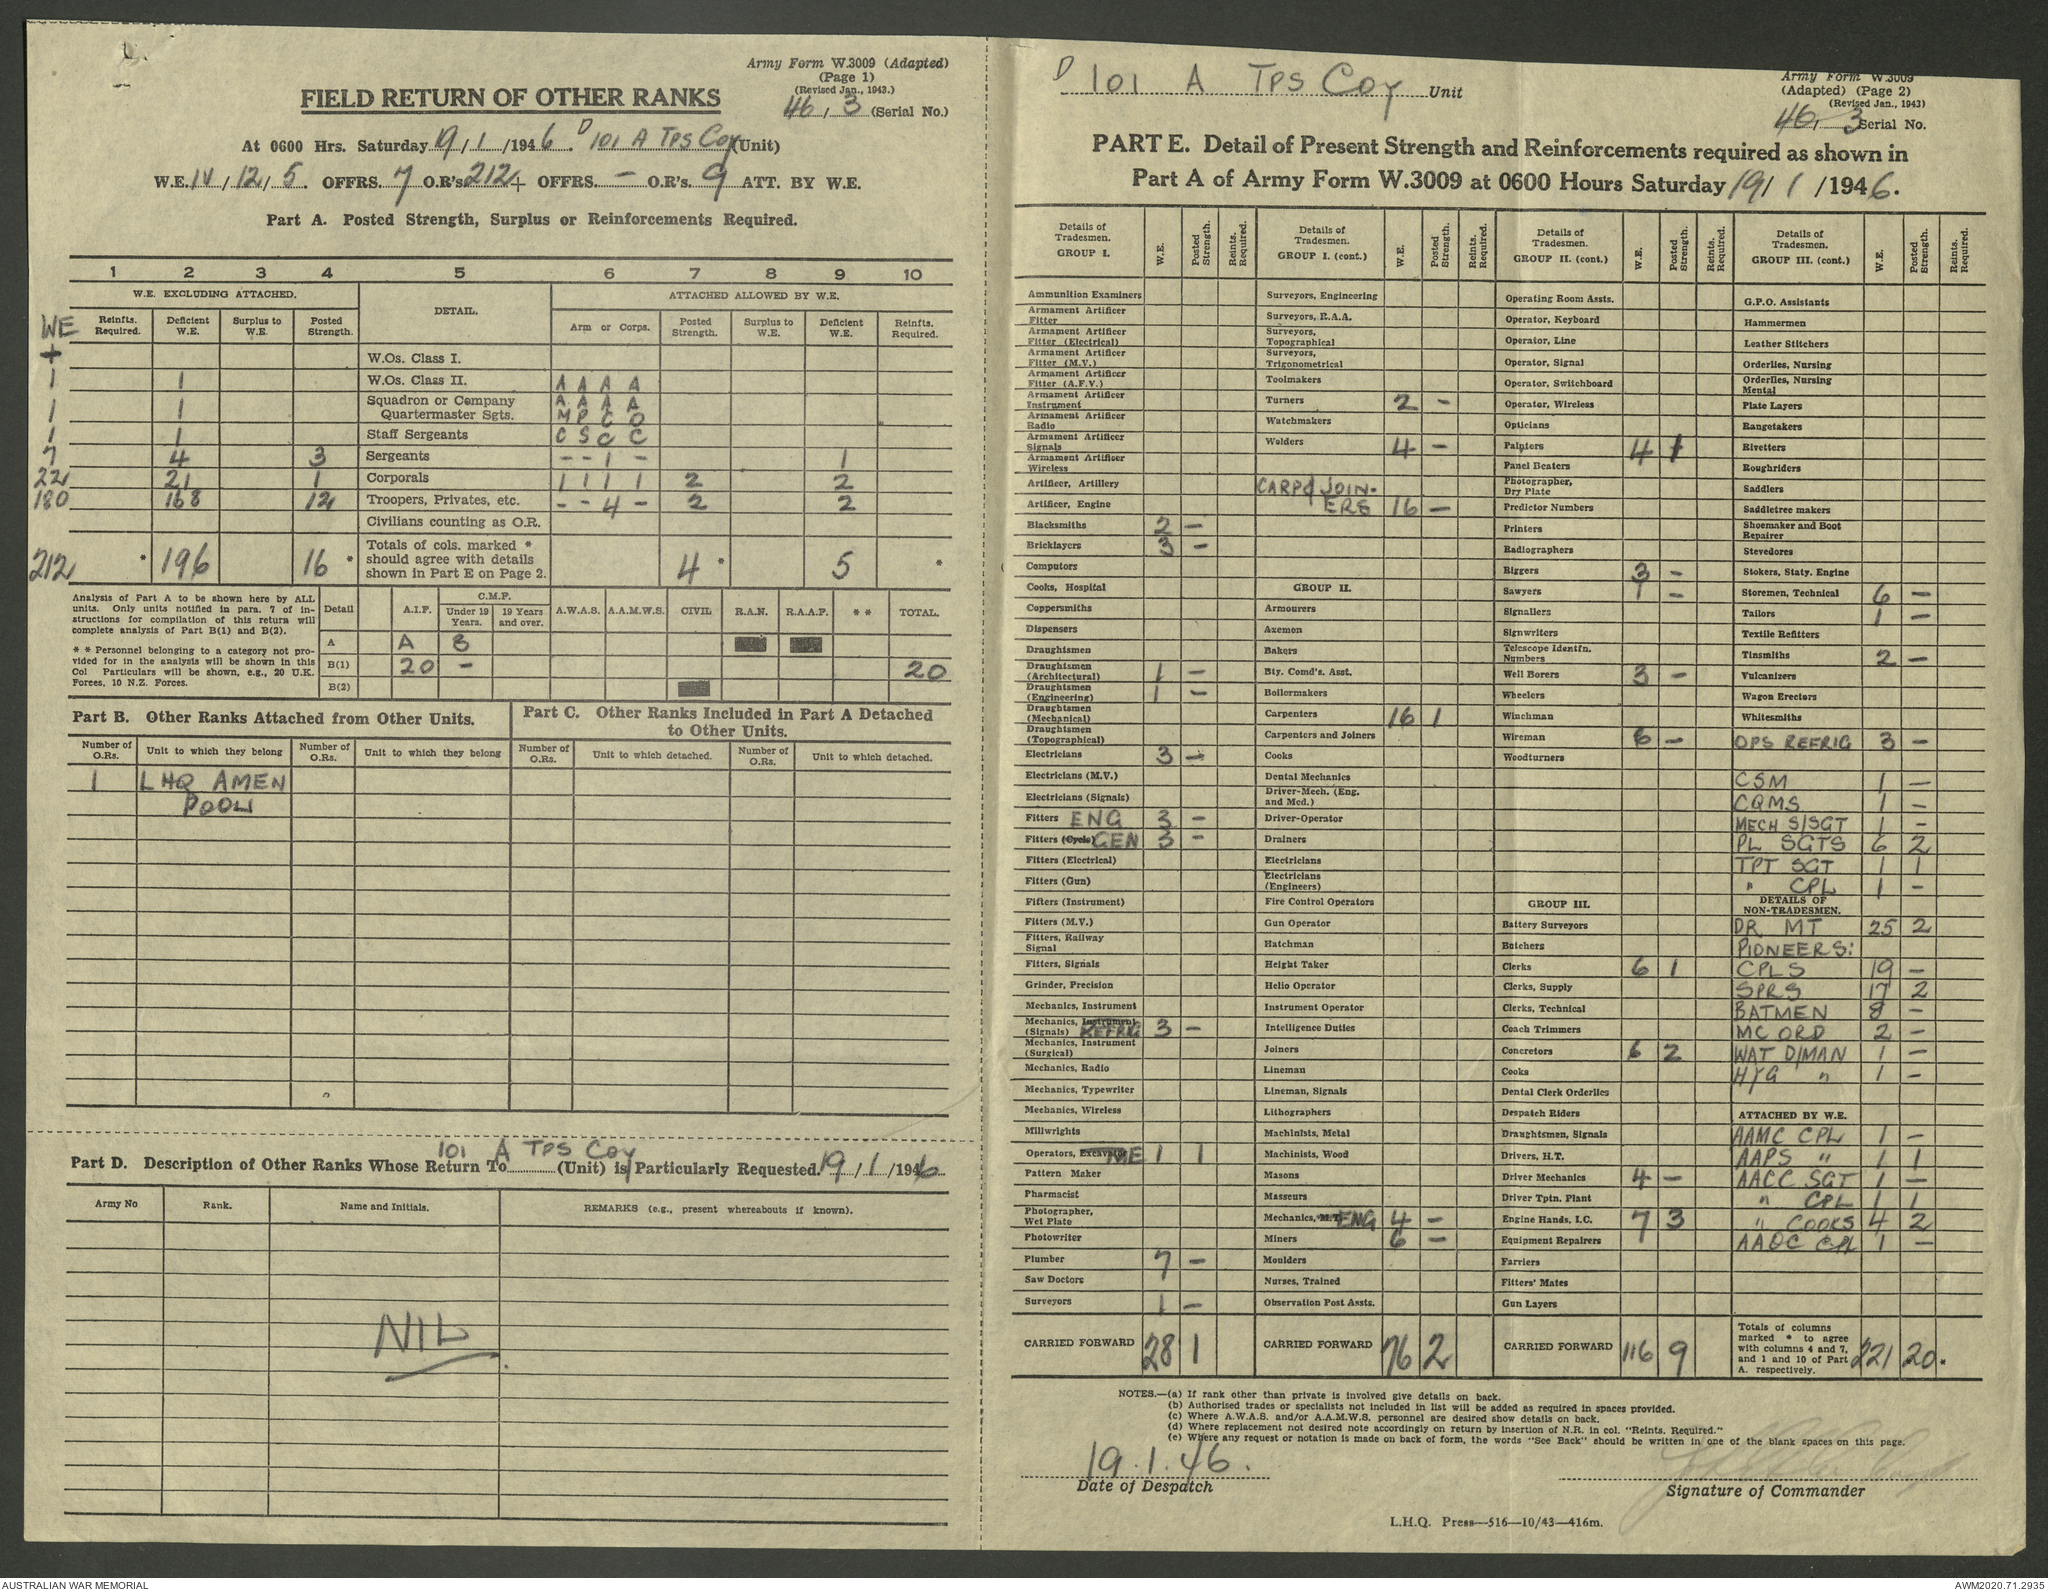 Army Form W.3009 (Adapted)
(Page 1)
(Revised Jan., 1943.)
46, 3 (Serial No.)
FIELD RETURN OF OTHER RANKS
At 0600 Hrs. Saturday 19/1/1946. D 101 A TPS Coy (Unit)
W.E. IV/12/5. OFFRS. 7 O.R's 212 + OFFRS. - O.R's. 9 ATT. BY W.E.
Part A. Posted Strength, Surplus or Reinforcements Required.
1 2 3 4 5 6 7 8 9 10
W.E. EXCLUDING ATTACHED. DETAIL. ATTACHED ALLOWED BY W.E.
WE Reinfts. Required. Deficient W.E. Surplus to W.E. Posted Strength. Arm or Corps. Posted Strength. Surplus to W.E. Deficient W.E. Reinfts. Required.
+ W.Os. Class I.
1 1 W.Os. Class II. A A A A
1 1 Squadron or Company Quartermaster Sgts. A A A A M P C O
1 1 Staff Sergeants C S C C
7 4 3 Sergeants - - 1 - 1
22 21 1 Corporals 1 1 1 1 2 2
180 168 12 Troopers, Privates, etc. - - 4 - 2 2
Civilians counting as O.R.
212 * 196 16 * Totals of cols. marked * should agree with details shown in Part E on Page 2. 4 * 5 *
Analysis of Part A to be shown here by ALL units. Only units notified in para. 7 of instructions for compilation of this return will complete analysis of Part B(1) and B(2).
* * Personnel belonging to a category not provided for in the analysis will be shown in this Col Particulars will be shown, e.g., 20 U.K. Forces, 10 N.Z. Forces.
Detail A.I.F. C.M.F. Under 19 Years. 19 Years and over. A.W.A.S. A.A.M.W.S. CIVIL R.A.N. R.A.A.F. * * TOTAL.
A A B
B(1) 20 - 20
B(2)
Part B. Other Ranks Attached from Other Units.
Part C. Other Ranks Included in Part A Detached to Other Units.
Number of O.Rs. Unit to which they belong Number of O.Rs. Unit to which they belong Number of O.Rs. Unit to which detached. Number of O.Rs. Unit to which detached.
1 LHQ AMEN
POOL
Part D. Description of Other Ranks Whose Return To 101 A TPS Coy (Unit) is Particularly Requested. 19/1/1946
Army No Rank. Name and Initials. REMARKS (e.g., present whereabouts if known).
NIL
D 101 A TPS Coy Unit
Army Form W.3009
(Adapted) (Page 2)
(Revised Jan., 1943)
46, 3 Serial No.
PART E. Detail of Present Strength and Reinforcements required as shown in
Part A of Army Form W.3009 at 0600 Hours Saturday 19/1/1946.
Details of Tradesmen. GROUP I. W.E. Posted Strength. Reints. Required.
Ammunition Examiners
Armament Artificer Fitter
Armament Artificer Fitter (Electrical)
Armament Artificer Fitter (M.V.)
Armament Artificer Fitter (A.F.V.)
Armament Artificer Instrument
Armament Artificer Radio
Armament Artificer Signals
Armament Artificer Wireless
Artificer, Artillery
Artificer, Engine
Blacksmiths 2 -
Bricklayers 3 -
Computors
Cooks, Hospital
Coppersmiths
Dispensers
Draughtsmen
Draughtsmen (Architectural) 1 -
Draughtsmen (Engineering) 1 -
Draughtsmen (Mechanical)
Draughtsmen (Topographical)
Electricians 3 -
Electricians (M.V.)
Electricians (Signals)
Fitters ENG 3 -
Fitters (Cycle) GEN 3 -
Fitters (Electrical)
Fitters (Gun)
Fitters (Instrument)
Fitters (M.V.)
Fitters, Railway Signal
Fitters, Signals
Grinder, Precision
Mechanics, Instrument
Mechanics, Instrument (Signals) REFRIG 3 -
Mechanics, Instrument (Surgical)
Mechanics, Radio
Mechanics, Typewriter
Mechanics, Wireless
Millwrights
Operators, Excavator ME 1 1
Pattern Maker
Pharmacist
Photographer, Wet Plate
Photowriter
Plumber 7 -
Saw Doctors
Surveyors 1 -
CARRIED FORWARD 28 1
Details of Tradesmen. GROUP I. (cont.) W.E. Posted Strength. Reints. Required.
Surveyors, Engineering
Surveyors, R.A.A.
Surveyors, Topographical
Surveyors, Trigonometrical
Toolmakers
Turners 2 -
Watchmakers
Welders 4 -
CARP & JOIN-
ERS 16 -
GROUP II.
Armourers
Axemen
Bakers
Bty. Comd's. Asst.
Boilermakers
Carpenters 16 1
Carpenters and Joiners
Cooks
Dental Mechanics
Driver-Mech. (Eng. and Med.)
Driver-Operator
Drainers
Electricians
Electricians (Engineers)
Fire Control Operators
Gun Operator
Hatchman
Height Taker
Helio Operator
Instrument Operator
Intelligence Duties
Joiners
Lineman
Lineman, Signals
Lithographers
Machinists, Metal
Machinists, Wood
Masons
Masseurs
Mechanics, M.T. ENG 4 -
Miners 6 -
Moulders
Nurses, Trained
Observation Post Assts.
CARRIED FORWARD 76 2
Details of Tradesmen. GROUP II. (cont.) W.E. Posted Strength. Reints. Required.
Operating Room Assts.
Operator, Keyboard
Operator, Line
Operator, Signal
Operator, Switchboard
Operator, Wireless
Opticians
Painters 4 1
Panel Beaters
Photographer, Dry Plate
Predictor Numbers
Printers
Radiographers
Riggers 3 -
Sawyers 1 -
Signallers
Signwriters
Telescope Identfn. Numbers
Well Borers 3 -
Wheelers
Winchman
Wireman 6 -
Woodturners
GROUP III.
Battery Surveyors
Butchers
Clerks 6 1
Clerks, Supply
Clerks, Technical
Coach Trimmers
Concretors 6 2
Cooks
Dental Clerk Orderlies
Despatch Riders
Draughtsmen, Signals
Drivers, H.T.
Driver Mechanics 4 -
Driver Tptn. Plant
Engine Hands, I.C. 7 3
Equipment Repairers
Farriers
Fitters' Mates
Gun Layers
CARRIED FORWARD 116 9
Details of Tradesmen. GROUP III. (cont.) W.E. Posted Strength. Reints. Required.
G.P.O. Assistants
Hammermen
Leather Stitchers
Orderlies, Nursing
Orderlies, Nursing Mental
Plate Layers
Rangetakers
Rivetters
Roughriders
Saddlers
Saddletree makers
Shoemaker and Boot Repairer
Stevedores
Stokers, Staty. Engine
Storemen, Technical 6 -
Tailors 1 -
Textile Refitters
Tinsmiths 2 -
Vulcanizers
Wagon Erectors
Whitesmiths
OPS REFRIG 3 -
CSM 1 -
CQMS 1 -
MECH S/SGT 1 -
PL SGTS 6 2
TPT SGT 1 1
" CPL 1 -
DETAILS OF NON-TRADESMEN.
DR MT 25 2
PIONEERS:
CPLS 19 -
SPRS 17 2
BATMEN 8 -
MC ORD 2 -
WAT D/MAN 1 -
HYG " 1 -
ATTACHED BY W.E.
AAMC CPL 1 -
AAPS " 1 1
AACC SGT 1 -
" CPL 1 1
" COOKS 4 2
AAOC CPL 1 -
Totals of columns marked * to agree with columns 4 and 7, and 1 and 10 of Part A. respectively. 221 20.
NOTES.—(a) If rank other than private is involved give details on back.
(b) Authorised trades or specialists not included in list will be added as required in spaces provided.
(c) Where A.W.A.S. and/or A.A.M.W.S. personnel are desired show details on back.
(d) Where replacement not desired note accordingly on return by insertion of N.R. in col. "Reints. Required."
(e) Where any request or notation is made on back of form, the words "See Back" should be written in one of the blank spaces on this page.
19.1.46.
Date of Despatch
Signature of Commander
L.H.Q. Press—516—10/43—416m.
AUSTRALIAN WAR MEMORIAL
AWM2020.71.2935